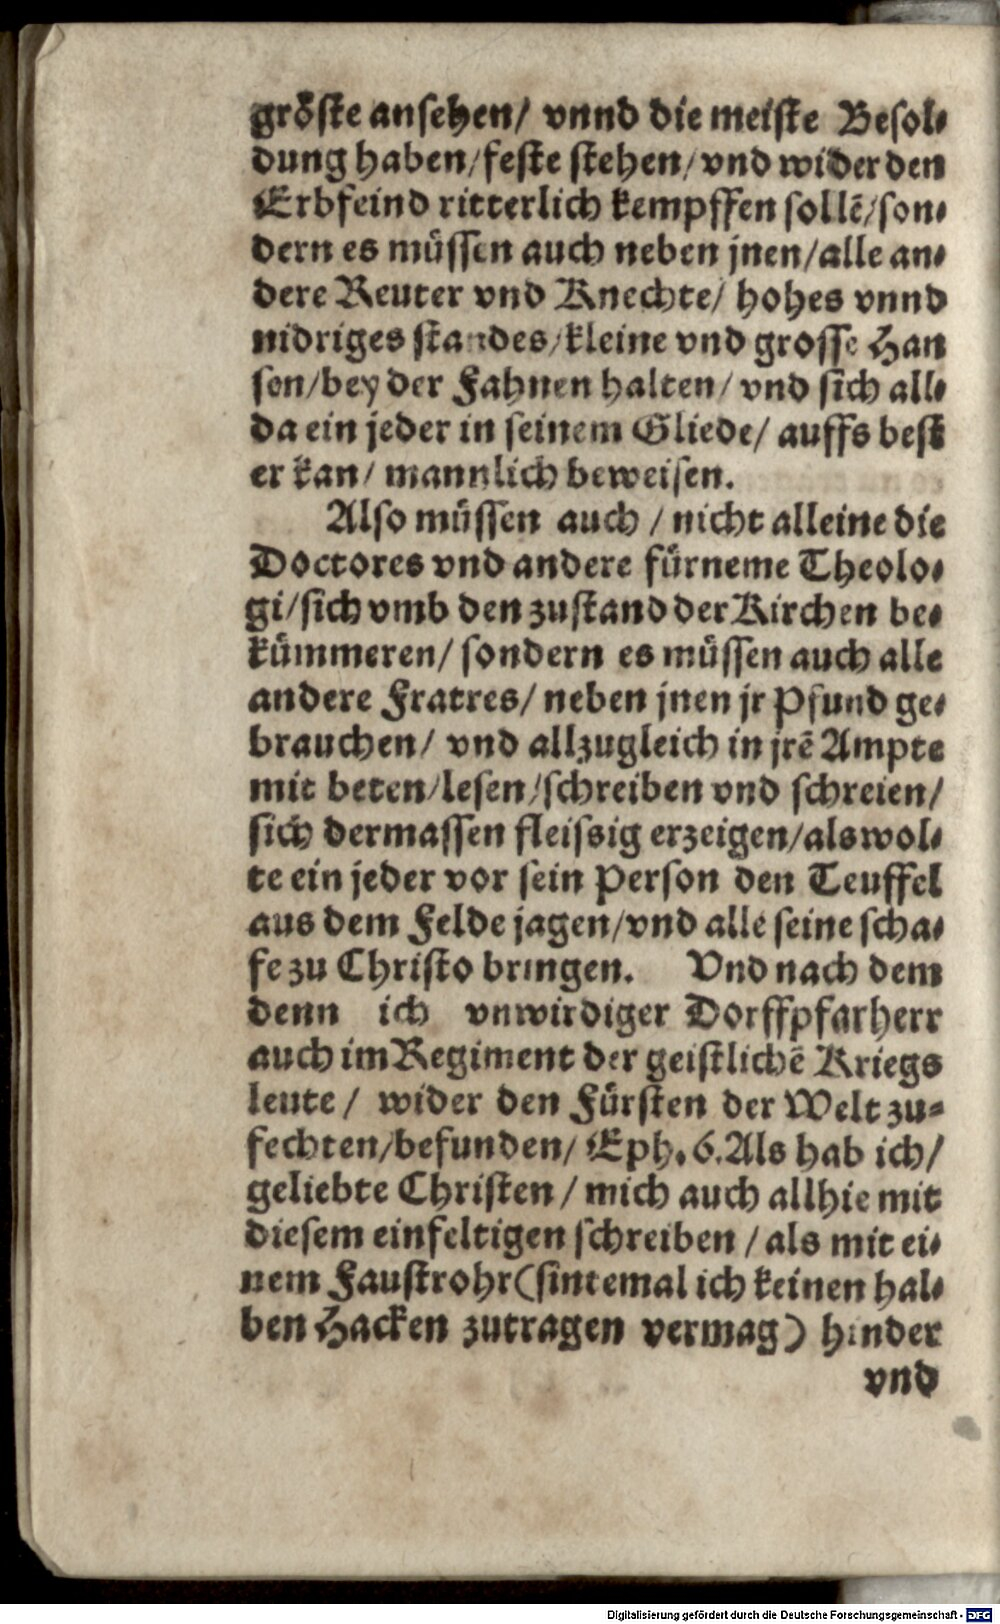 gröste ansehen/ vnnd die meiste Besol-
dung haben/feste stehen/vnd wider den
Erbfeind ritterlich kempffen sollē/son-
dern es müssen auch neben jnen/alle an-
dere Reuter vnd Knechte/ hohes vnnd
nidriges standes/kleine vnd grosse Han
sen/bey der Fahnen halten/ vnd sich all-
da ein jeder in seinem Gliede/ auffs best
er kan/ mannlich beweisen.
Also müssen auch / nicht alleine die
Doctores vnd andere fürneme Theolo-
gi/sich vmb den zustand der Kirchen be-
kümmeren/ sondern es müssen auch alle
andere Fratres/ neben jnen jr Pfund ge-
brauchen/ vnd allzugleich in jrē Ampte
mit beten/lesen/schreiben vnd schreien/
sich dermassen fleissig erzeigen/als wol-
te ein jeder vor sein Person den Teuffel
aus dem Felde jagen/vnd alle seine scha-
fe zu Christo bringen. Vnd nach dem
denn ich vnwirdiger Dorffpfarherr
auch im Regiment der geistlichē Kriegs
leute / wider den Fürsten der Welt zu-
fechten/befunden/ Eph. 6. Als hab ich/
geliebte Christen / mich auch allhie mit
diesem einfeltigen schreiben / als mit ei-
nem Faustrohr (sintemal ich keinen hal-
ben Hacken zutragen vermag) hinder
vnd
Digitalisierung gefördert durch die Deutsche Forschungsgemeinschaft - DFG